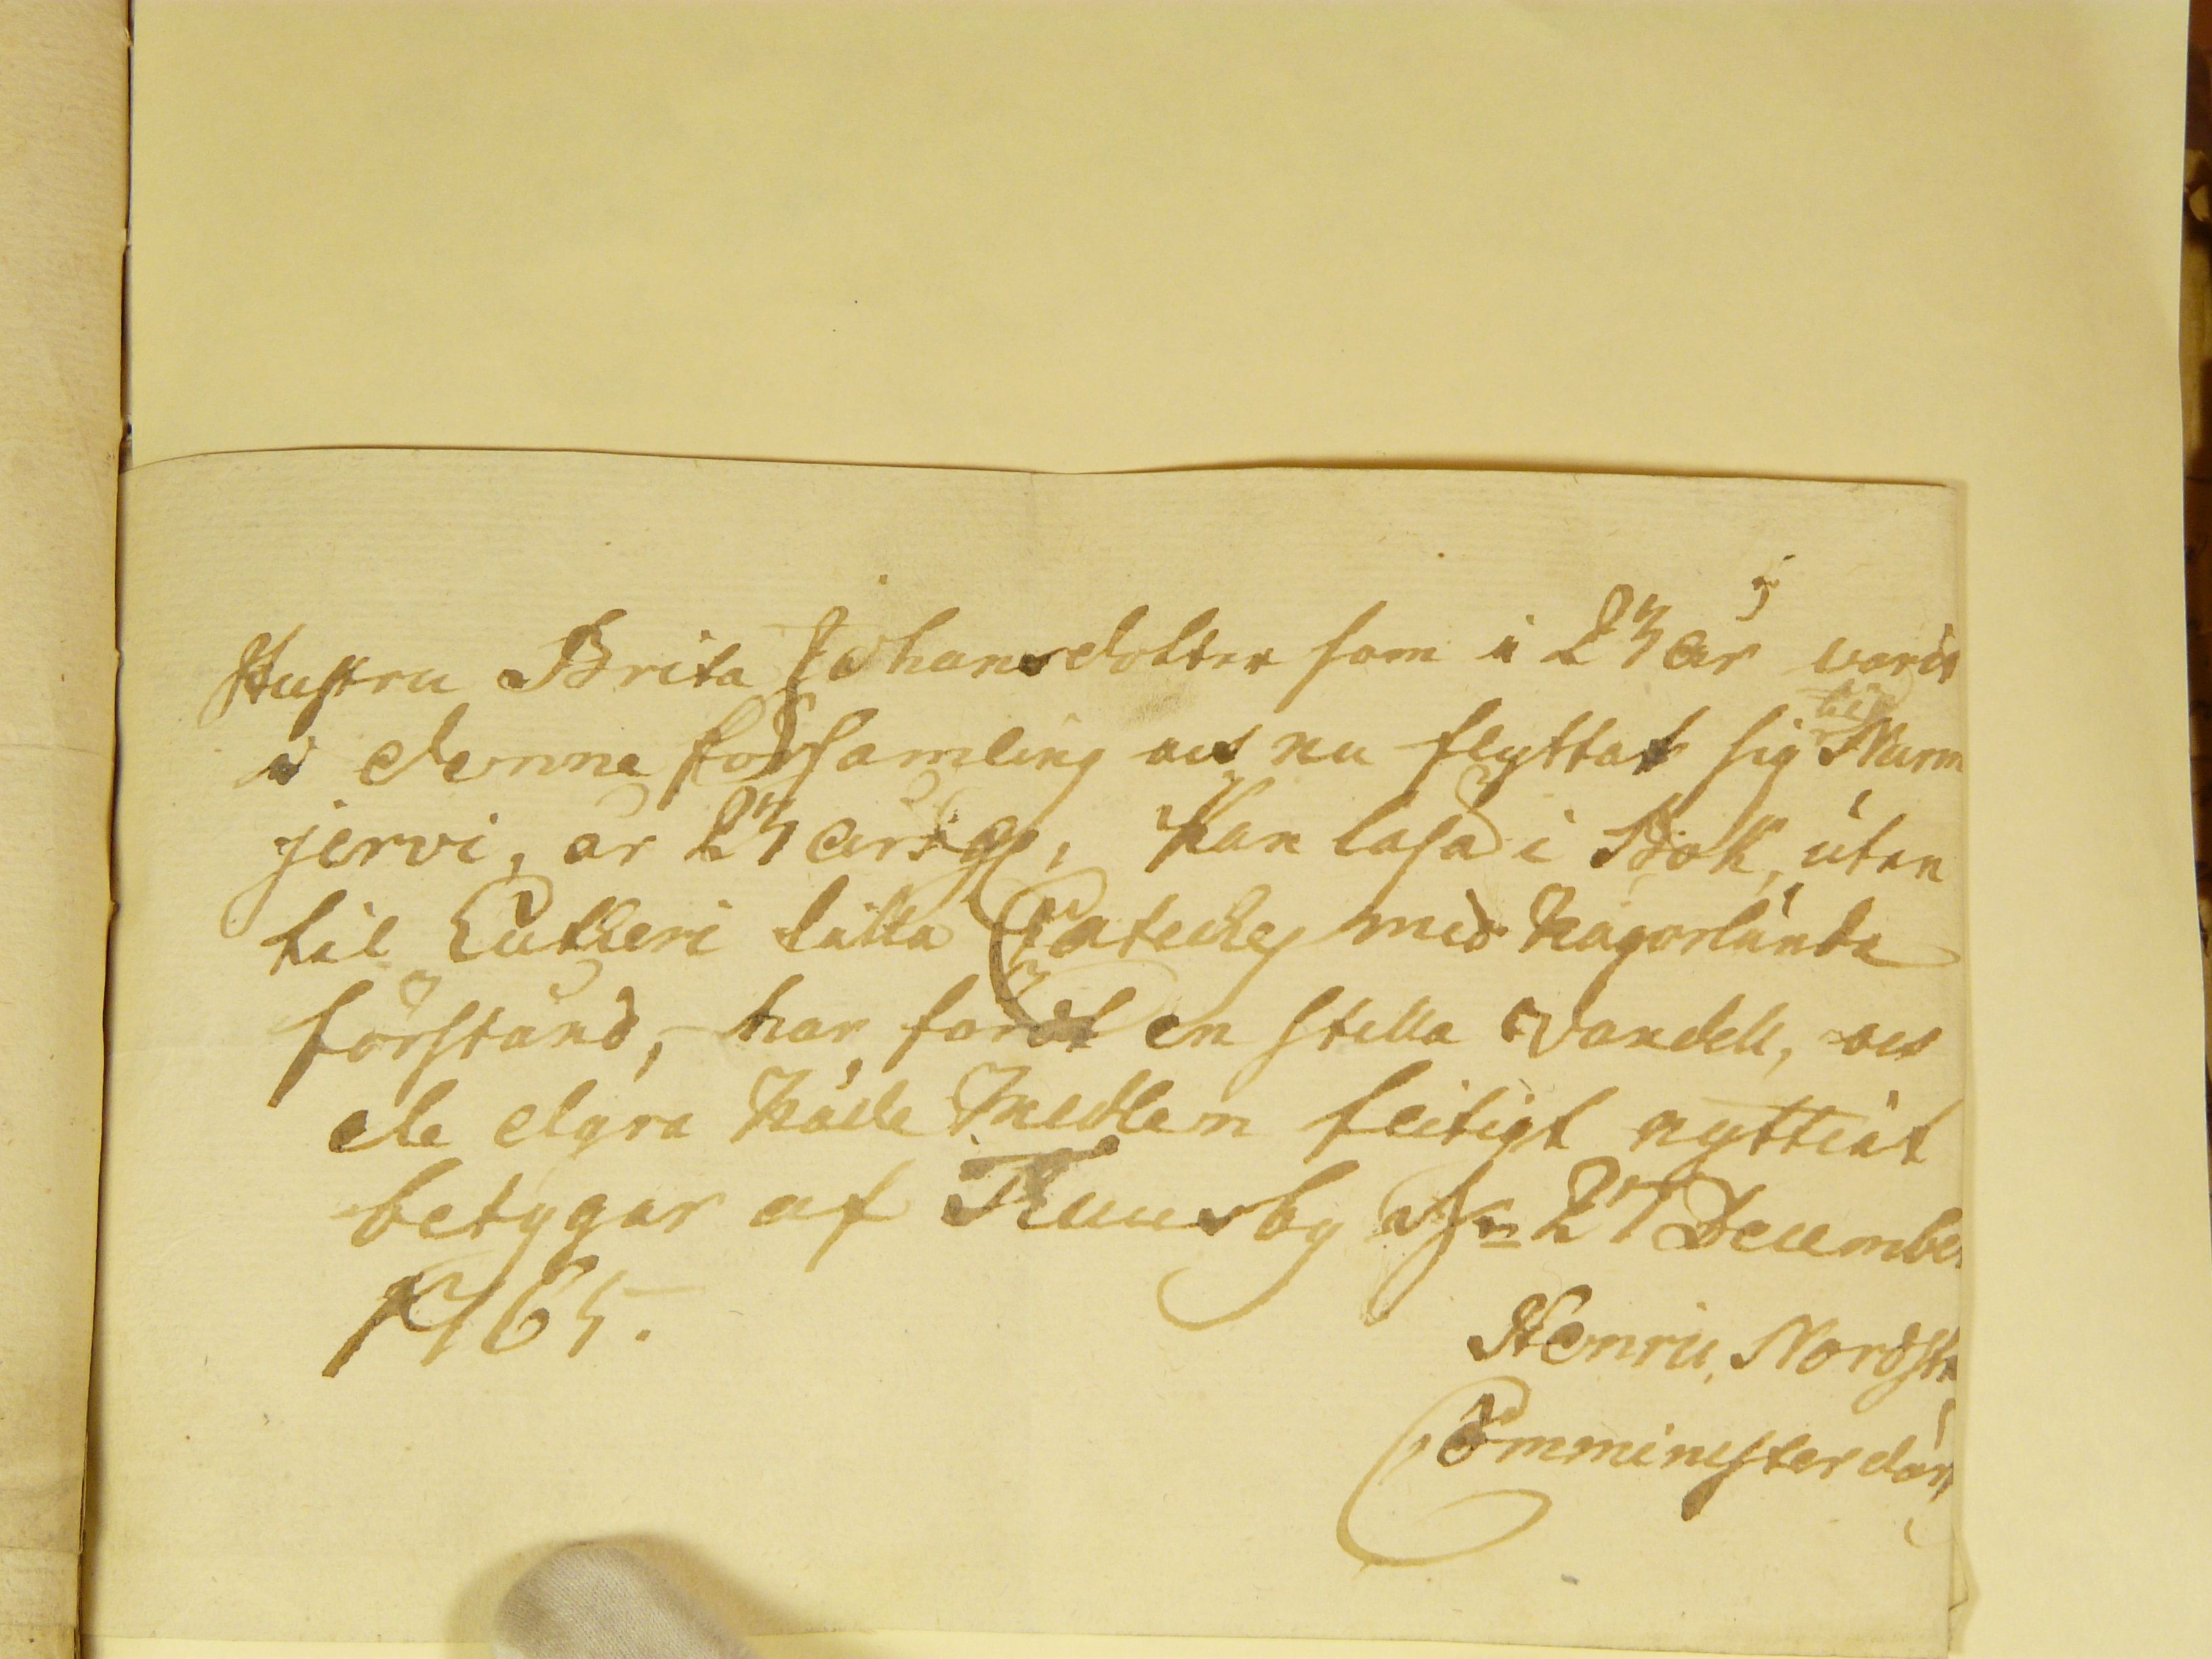 Hustru Brita Johansdotter som i 23 år varit
i denne församling och nu flyttat sig til Nurm
jervi, är 23 års g, Kan läsa i Bok, utan
til Lutheri lilla Cateches med någorlunda
förstånd, har fördt en stilla Vandell, och
de dyra Nåde Medlem flitigt nyttiat
betygar af Tuusby d 27 December
1765.
Henric Nordst
Comminister där